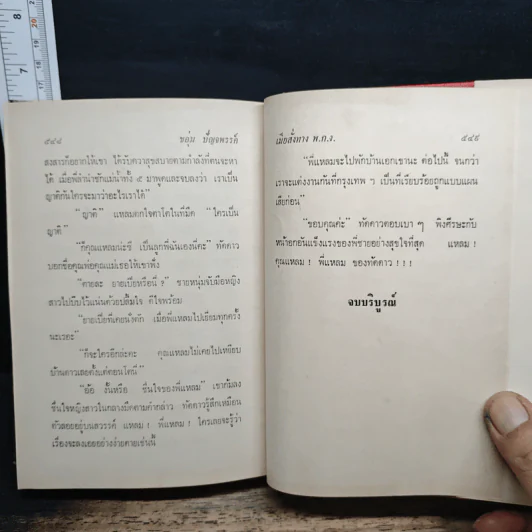 ๕๔๔ ชอุ่ม ปัญจพรรค์
สงสารก็อยากให้เขา ได้รับความสุขสบายตามกำลังที่ตนจะหา
ได้ เมื่อพี่ลำน่าชักแม่น้ำทั้ง ๕ มาพูดและจบลงว่า เราเป็น
ญาติกันใครจะมาว่าอะไรเราได้"
"ญาติ" แหลมตกใจตาโตในที่มืด "ใครเป็น
ญาติ"
"ก็คุณแหลมน่ะซี เป็นลูกพี่ฉันเองนี่คะ" ทัดดาว
บอกชื่อคุณพ่อคุณแม่เธอให้เขาฟัง
"ตายละ ยายเบี้ยหรือนี่ ?" ชายหนุ่มจับมือหญิง
สาวไปบีบไว้แน่นด้วยปลื้มใจ ดีใจพร้อม
"ยายเบี้ยที่เคย เมื่อพี่แหลมไปเยี่ยมทุกครั้ง
นะเรอะ"
"ก็จะใครอีกล่ะคะ คุณแหลมไม่เคยไปเหยียบ
บ้านดาวเลยตั้งแต่ตอนโตนี่"
"อ้อ งั้นหรือ ชื่นใจของพี่แหลม" เขาก้มลง
ชื่นใจหญิงสาวในกลางมืดตามคำกล่าว ทัดดาวรู้สึกเหมือน
ตัวลอยอยู่บนสวรรค์ แหลม ! พี่แหลม ! ใครเลยจะรู้ว่า
เรื่องจะลงเอยอย่างง่ายดายเช่นนี้
เมียสั่งทาง พ.ก.ง. ๕๔๕
"พี่แหลมจะไปพักบ้านเอกเขานะ ต่อไปนี้ จนกว่า
เราจะแต่งงานกันที่กรุงเทพ ฯ เป็นที่เรียบร้อยถูกแบบแผน
เสียก่อน"
"ขอบคุณค่ะ" ทัดดาวตอบเบา ๆ พิงศีรษะกับ
หน้าอกอันแข็งแรงของพี่ชายอย่างสุขใจที่สุด แหลม !
คุณแหลม ! พี่แหลม ของทัดดาว ! ! !
จบบริบูรณ์
8
7
20